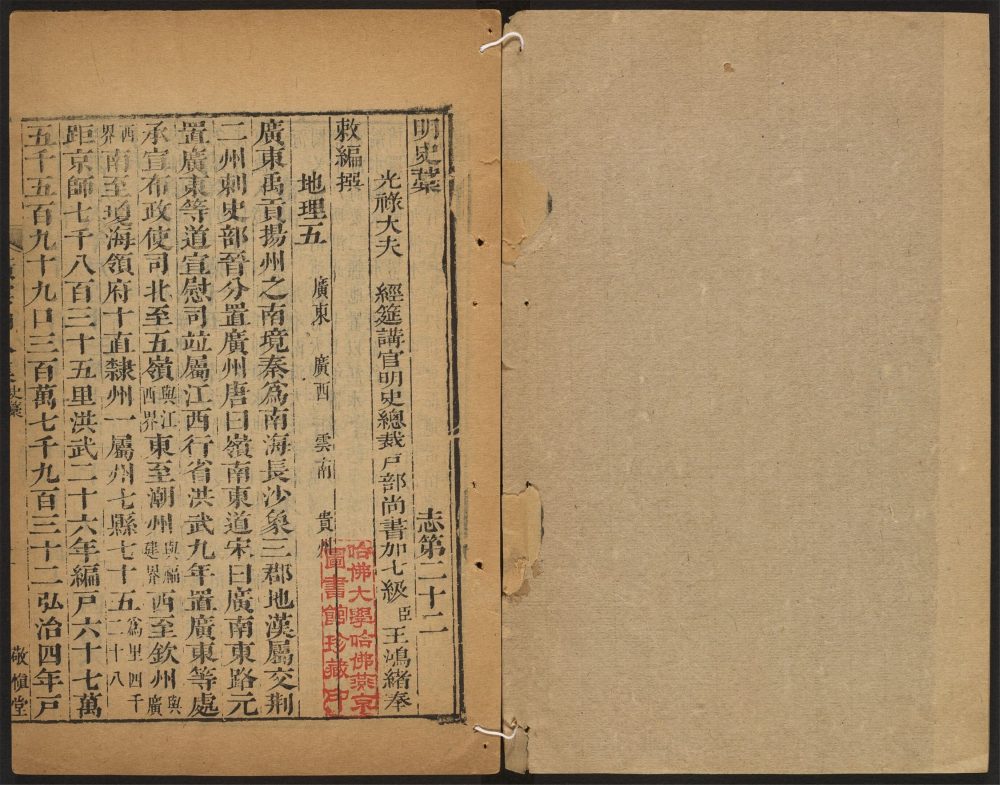 明史藁 志第二十二
光祿大夫 經筵講官明史總裁戶部尚書加七級臣王鴻緒奉
敕編撰
地理五 廣東 廣西 雲南 貴州
廣東禹貢揚州之南境秦爲南海長沙象三郡地漢屬交荆
二州刺史部晉分置廣州唐曰嶺南東道宋曰廣南東路元
置廣東等道宣慰司竝屬江西行省洪武九年置廣東等處
承宣布政使司北至五嶺與江西界東至潮州與福建界西至欽州與廣
西界南至瓊海領府十直隸州一屬州七縣七十五爲里四千二十八
距京師七千八百三十五里洪武二十六年編戸六十七萬
五千五百九十九口三百萬七千九百三十二弘治四年戸
史藁
敬慎堂
哈佛大學哈佛燕京
圖書館珍藏印